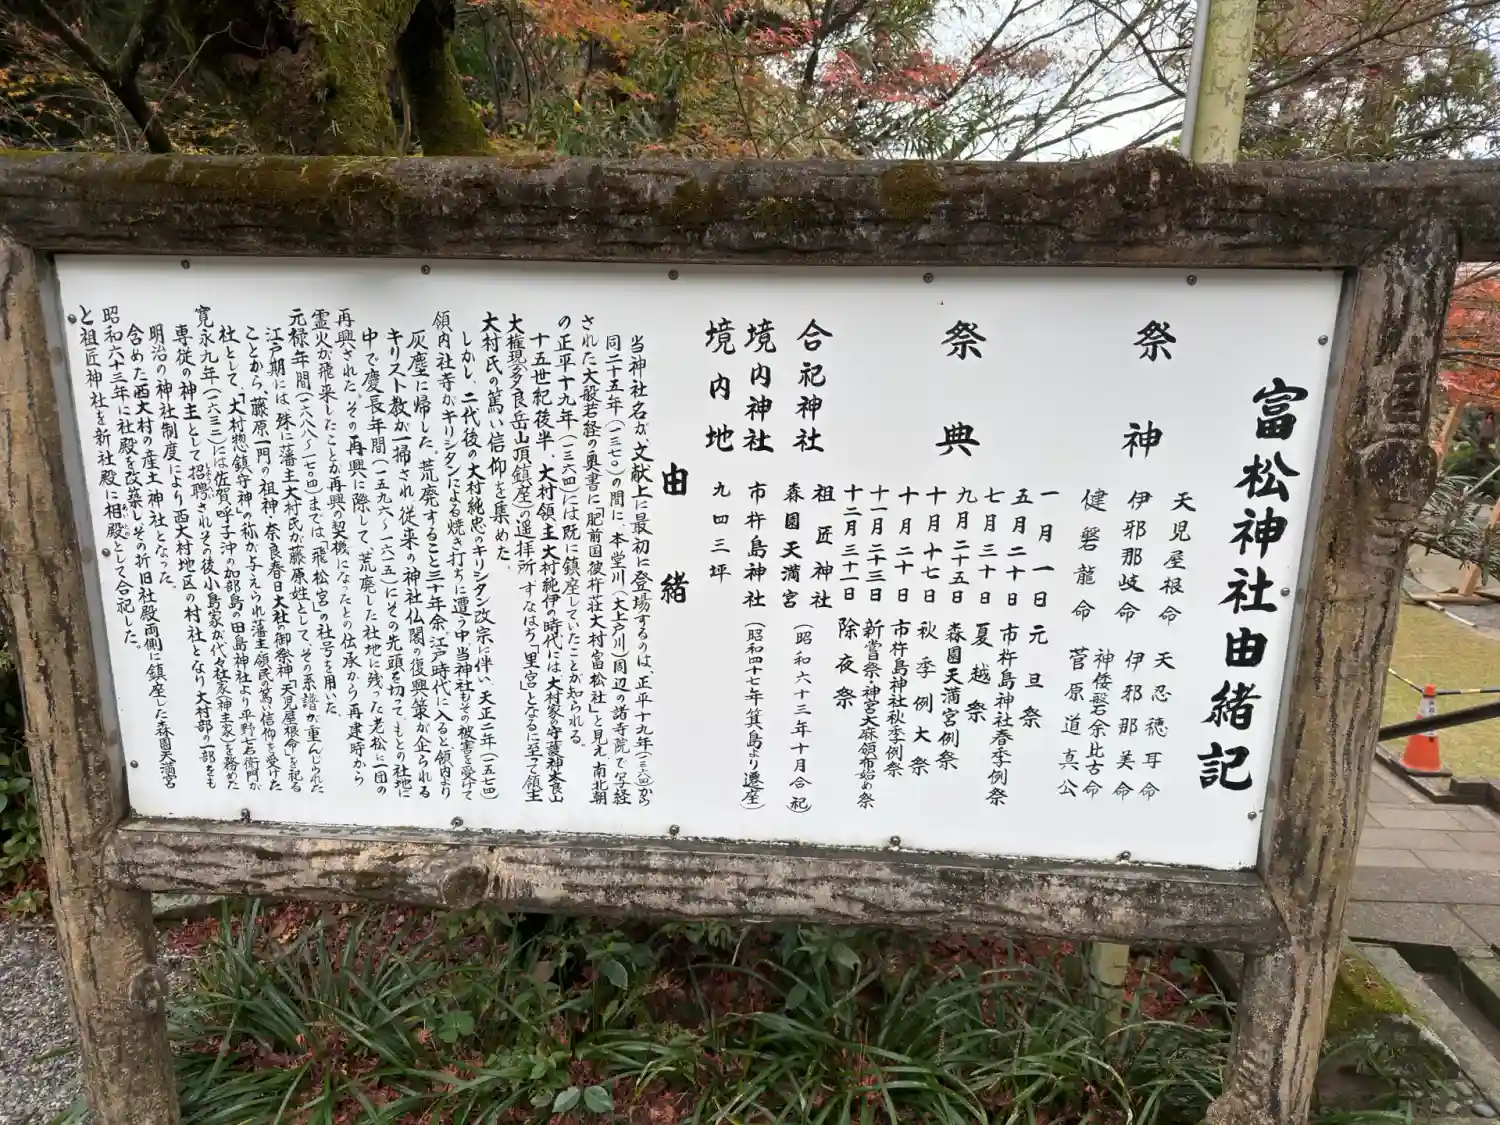 富松神社由緒記
祭神
天児屋根命　天忍穂耳命
伊邪那岐命　伊邪那美命
神倭磐余比古命
健磐龍命　菅原道真公
祭典
一月一日　元旦祭
五月二十日　市杵島神社春季例祭
七月三十日　夏越祭
九月二十五日　森園天満宮例祭
十月十七日　秋季例大祭
十月二十日　市杵島神社秋季例祭
十一月二十三日　新嘗祭・神宮大麻頒布始め祭
十二月三十一日　除夜祭
合祀神社　祖匠神社（昭和六十三年十月合祀）
森園天満宮
境内神社　市杵島神社（昭和四十七年箕島より遷座）
境内地　九四三坪
由緒
当神社名が文献上に最初に登場するのは、正平十九年（一三六四）から
同二十五年（一三七〇）の間に、本堂川（大上戸川）周辺の諸寺院で写経
された大般若経の奥書に「肥前国彼杵荘大村富松社」と見え、南北朝
の正平十九年（一三六四）には既に鎮座していたことが知られる。
十五世紀後半、大村領主大村純伊の時代には大村家の守護神太良山
大権現（多良岳山頂鎮座）の遥拝所、すなはち「里宮」となるに至って領主
大村氏の篤い信仰を集めた。
しかし、二代後の大村純忠のキリシタン改宗に伴い、天正二年（一五七四）
領内社寺がキリシタンによる焼き打ちに遭う中当神社もその被害を受けて
灰塵に帰した。荒廃すること三十年余江戸時代に入ると領内より
キリスト教が一掃され、従来の神社仏閣の復興策が企られる
中で慶長年間（一五九六～一六一五）にその先頭を切って、もとの社地に
再興された。その再興に際して、荒廃した社地に残った老松に一団の
霊火が飛来したことが再興の契機になったとの伝承から再建時から
元禄年間（一六八八～一七〇四）までは、「飛松宮」の社号を用いた。
江戸期には殊に藩主大村氏が藤原姓として、その系譜が重んじられた
ことから、藤原一門の祖神、奈良春日大社の御祭神「天児屋根命」を祀る
社として、「大村惣鎮守神」の称が与えられ藩主領民の篤い信仰を受けた
寛永九年（一六三二）には佐賀・呼子沖の加部島の田島神社より平野七右衛門が
専従の神主として招聘されその後小島家が代々社家（神主家）を務めた
明治の神社制度により西大村地区の村社となり大村部の一部をも
含めた西大村の産土神社となった。
昭和六十三年に社殿を改築し、その折旧社殿両側に鎮座した森園天満宮
と祖匠神社を新社殿に相殿として合祀した。